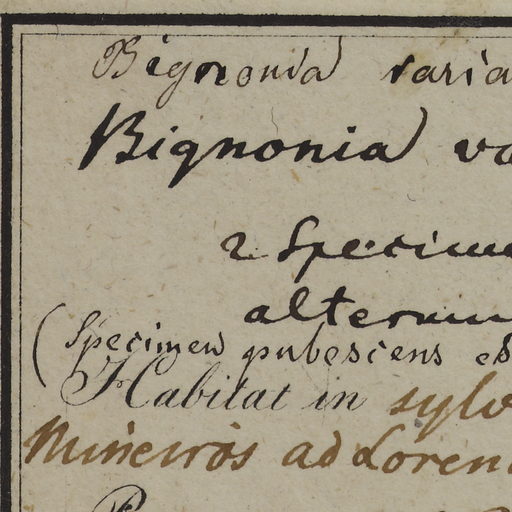 Bignonia varia
Bignonia va
2 Specime
alterum
(Specimen pubescens es
Habitat in sylv
Mineiros ad Loren